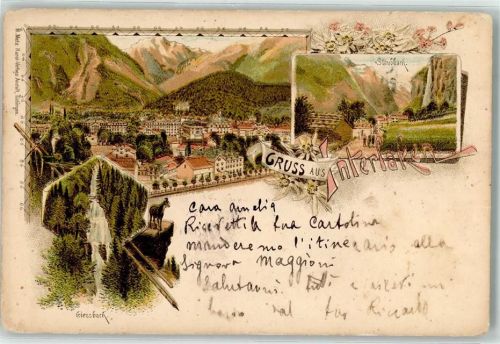 Staubbach.
GRUSS AUS Interlaken
Giessbach
Cara Amelia
Ricevetti la tua Cartolina
manderemo l'itinerario alla
Signora Maggioni
Salutami tutti e ricevi un
bacio dal tuo Riccardo